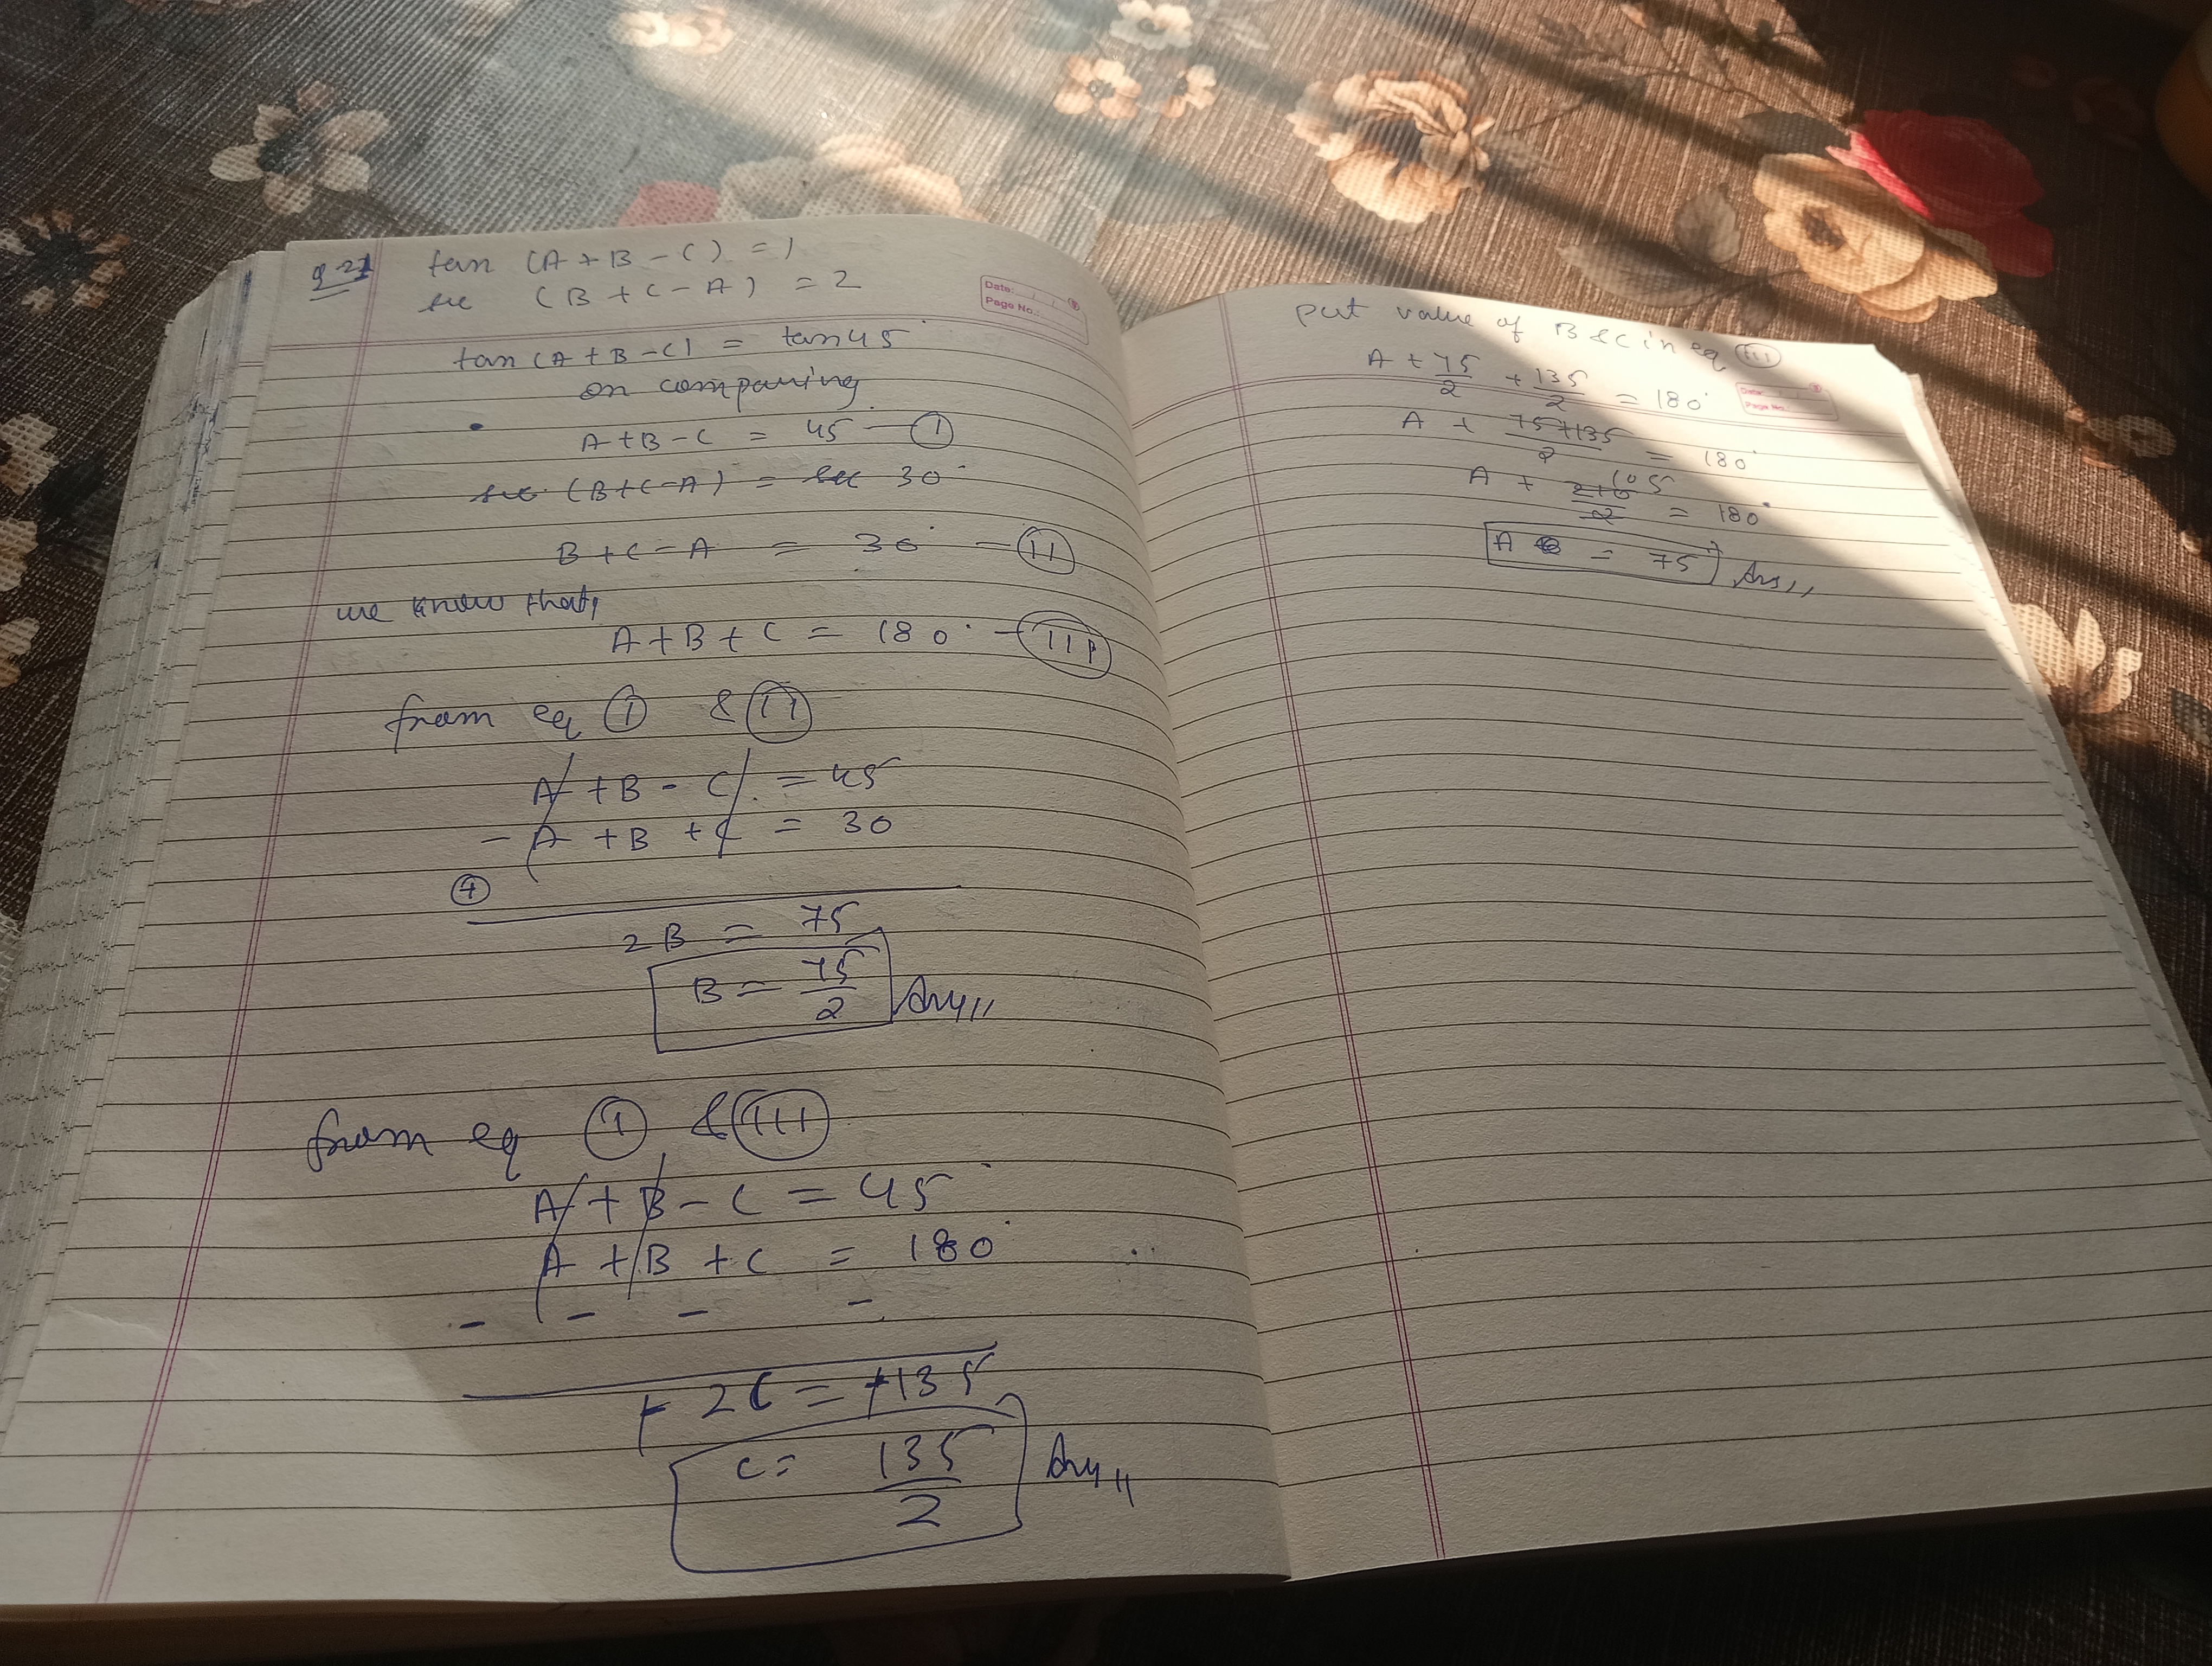 Q-21 tan (A + B - C) = 1
sec (B + C - A) = 2
Date:
Page No.:
tan (A + B - C) = tan 45°
on comparing
A + B - C = 45 - (I)
sec (B + C - A) = sec 30°
B + C - A = 30° - (II)
we know that,
A + B + C = 180° - (III)
from eq (I) & (II)
A + B - C = 45
- A + B + C = 30
(+)
2B = 75
B = 75/2 Ans//
from eq (I) & (III)
A + B - C = 45°
A + B + C = 180°
- - - -
- 2C = -135
C = 135/2 Ans//
put value of B & C in eq (III)
A + 75/2 + 135/2 = 180°
Date:
Page No.:
A + 75+135/2 = 180°
105
A + 210/2 = 180°
A = 75° Ans//